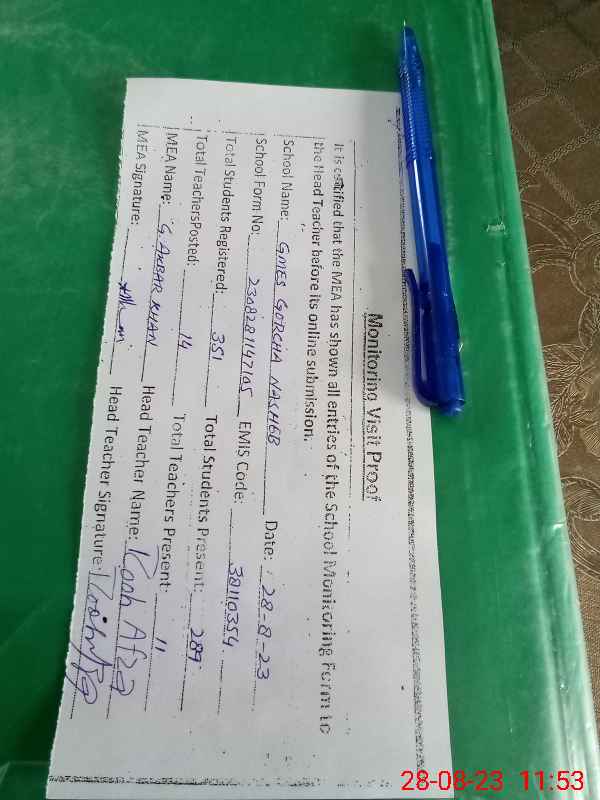 Monitoring Visit Proof
It is certified that the MEA has shown all entries of the School Monitoring Form to
the Head Teacher before its online submission.
School Name: GMES GORCHA NASHEB Date: 28-8-23
School Form No: 2308281147105 EMIS Code: 38110354
Total Students Registered: 351 Total Students Present: 289
Total TeachersPosted: 14 Total Teachers Present: 11
MEA Name: G. AKBAR KHAN Head Teacher Name: Kosh Afza
MEA Signature: Head Teacher Signature:
28-08-23 11:53